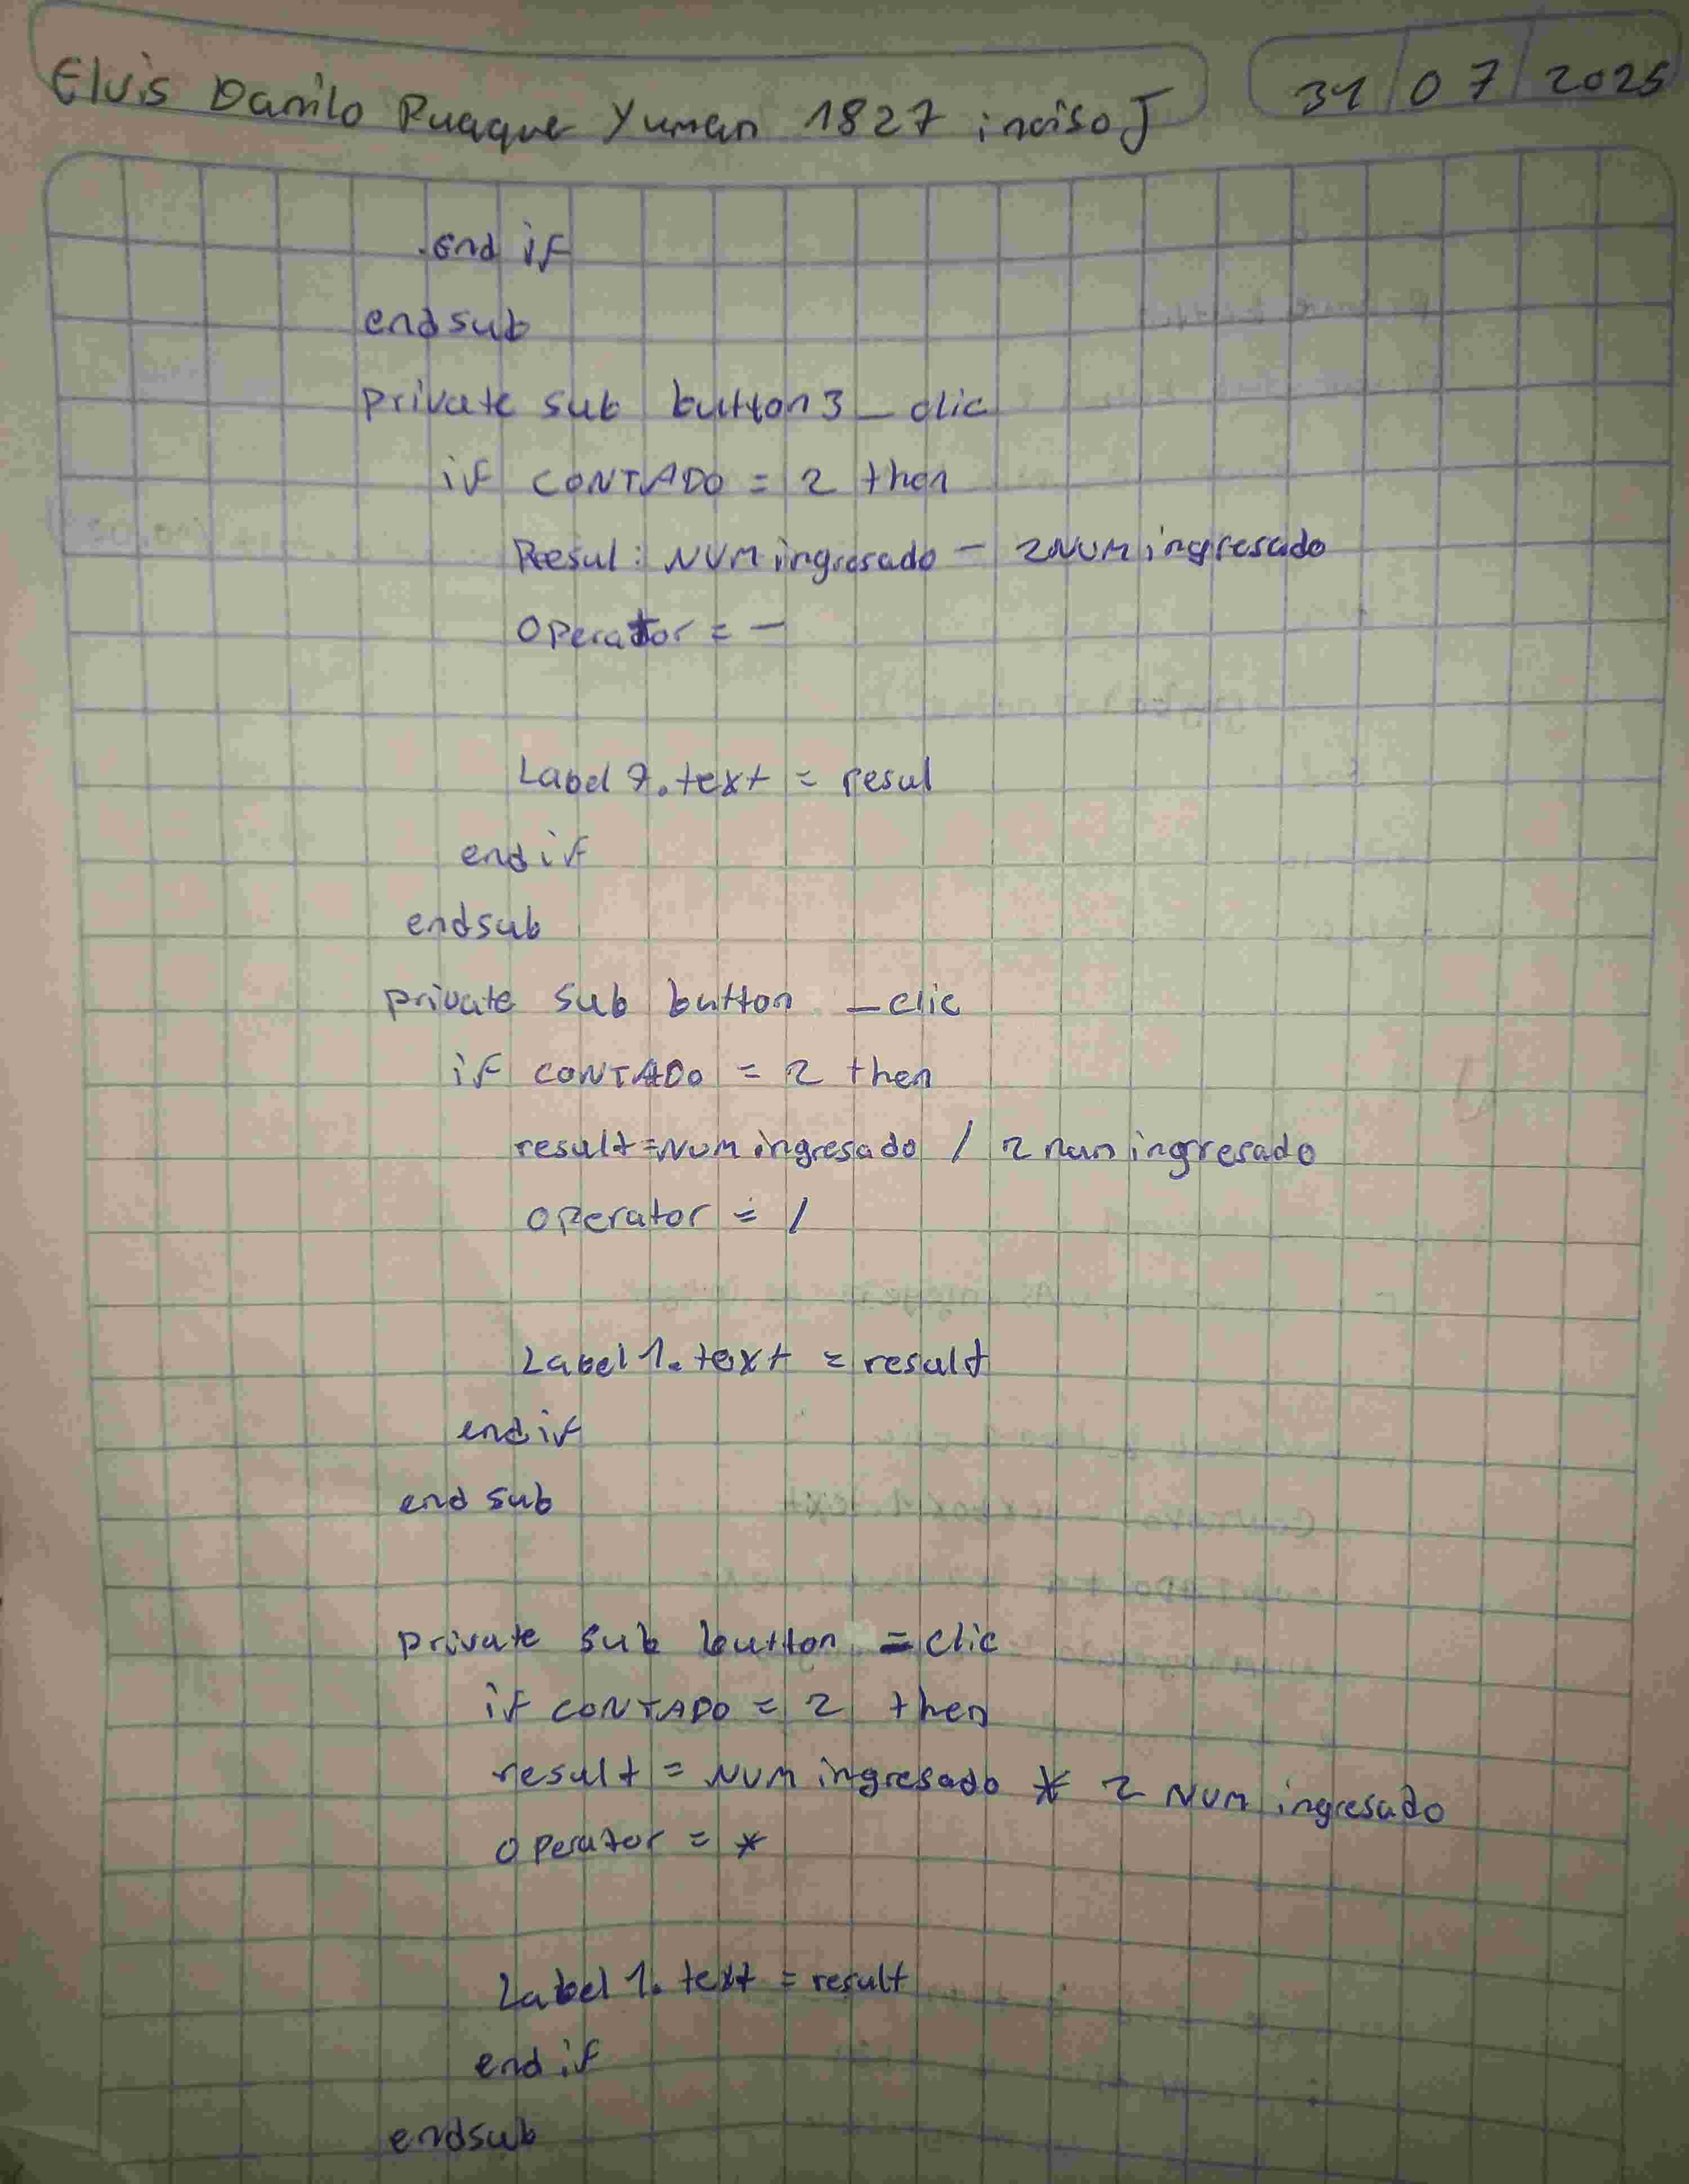 Elvis Danilo Ruaque Yuman 1827 inciso J 31/07/2025
end if
endsub
private sub button3_clic
if CONTADO = 2 then
Resul: NUM ingresado - 2NUM ingresado
Operator = -
Label 7.text = resul
end if
endsub
private sub button _clic
if CONTADO = 2 then
result=NUM ingresado / 2 num ingresado
operator = /
Label 1.text = result
end if
end sub
private sub button =clic
if CONTADO = 2 then
result = NUM ingresado * 2 NUM ingresado
operator = *
Label 1.text = result
end if
endsub